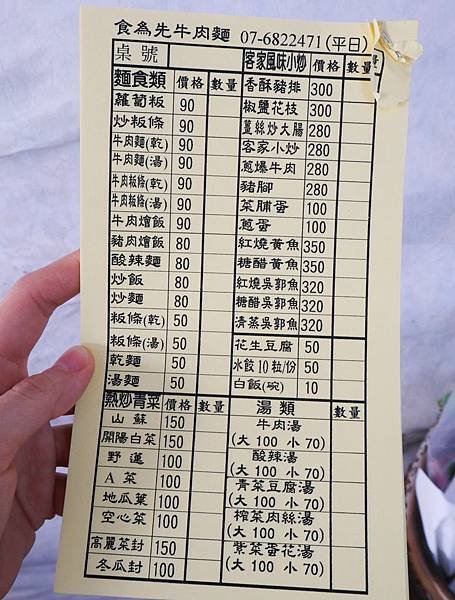 食為先牛肉麵 07-6822471(平日)
桌號 客家風味小炒 價格 數量
麵食類 價格 數量 香酥豬排 300
蘿蔔粄 90 椒鹽花枝 300
炒粄條 90 薑絲炒大腸 280
牛肉麵(乾) 90 客家小炒 280
牛肉麵(湯) 90 蔥爆牛肉 280
牛肉粄條(乾) 90 豬腳 280
牛肉粄條(湯) 90 菜脯蛋 100
牛肉燴飯 90 蔥蛋 100
豬肉燴飯 80 紅燒黃魚 350
酸辣麵 80 糖醋黃魚 350
炒飯 80 紅燒吳郭魚 320
炒麵 80 糖醋吳郭魚 320
粄條(乾) 50 清蒸吳郭魚 320
粄條(湯) 50 花生豆腐 50
乾麵 50 水餃10粒/份 50
湯麵 50 白飯(碗) 10
熱炒青菜 價格 數量 湯類 數量
山蘇 150 牛肉湯
(大 100 小 70)
開陽白菜 150 酸辣湯
(大 100 小 70)
野蓮 100 青菜豆腐湯
(大 100 小 70)
A菜 100 榨菜肉絲湯
(大 100 小 70)
地瓜葉 100 紫菜蛋花湯
(大 100 小 70)
空心菜 100
高麗菜封 150
冬瓜封 100